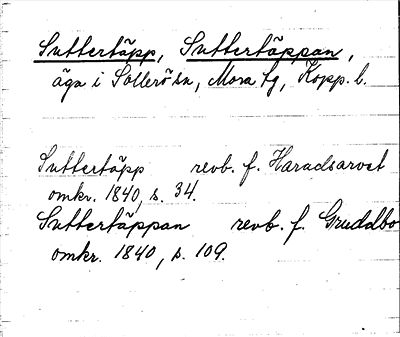 Suttertäpp, Suttertäppan,
äga i Sollerö sn, Mora tg, Kopp. l.
Suttertäpp revb. f. Haradsarvet
omkr. 1840, s. 34.
Suttertäppan revb. f. Gruddbo
omkr. 1840, s. 109.